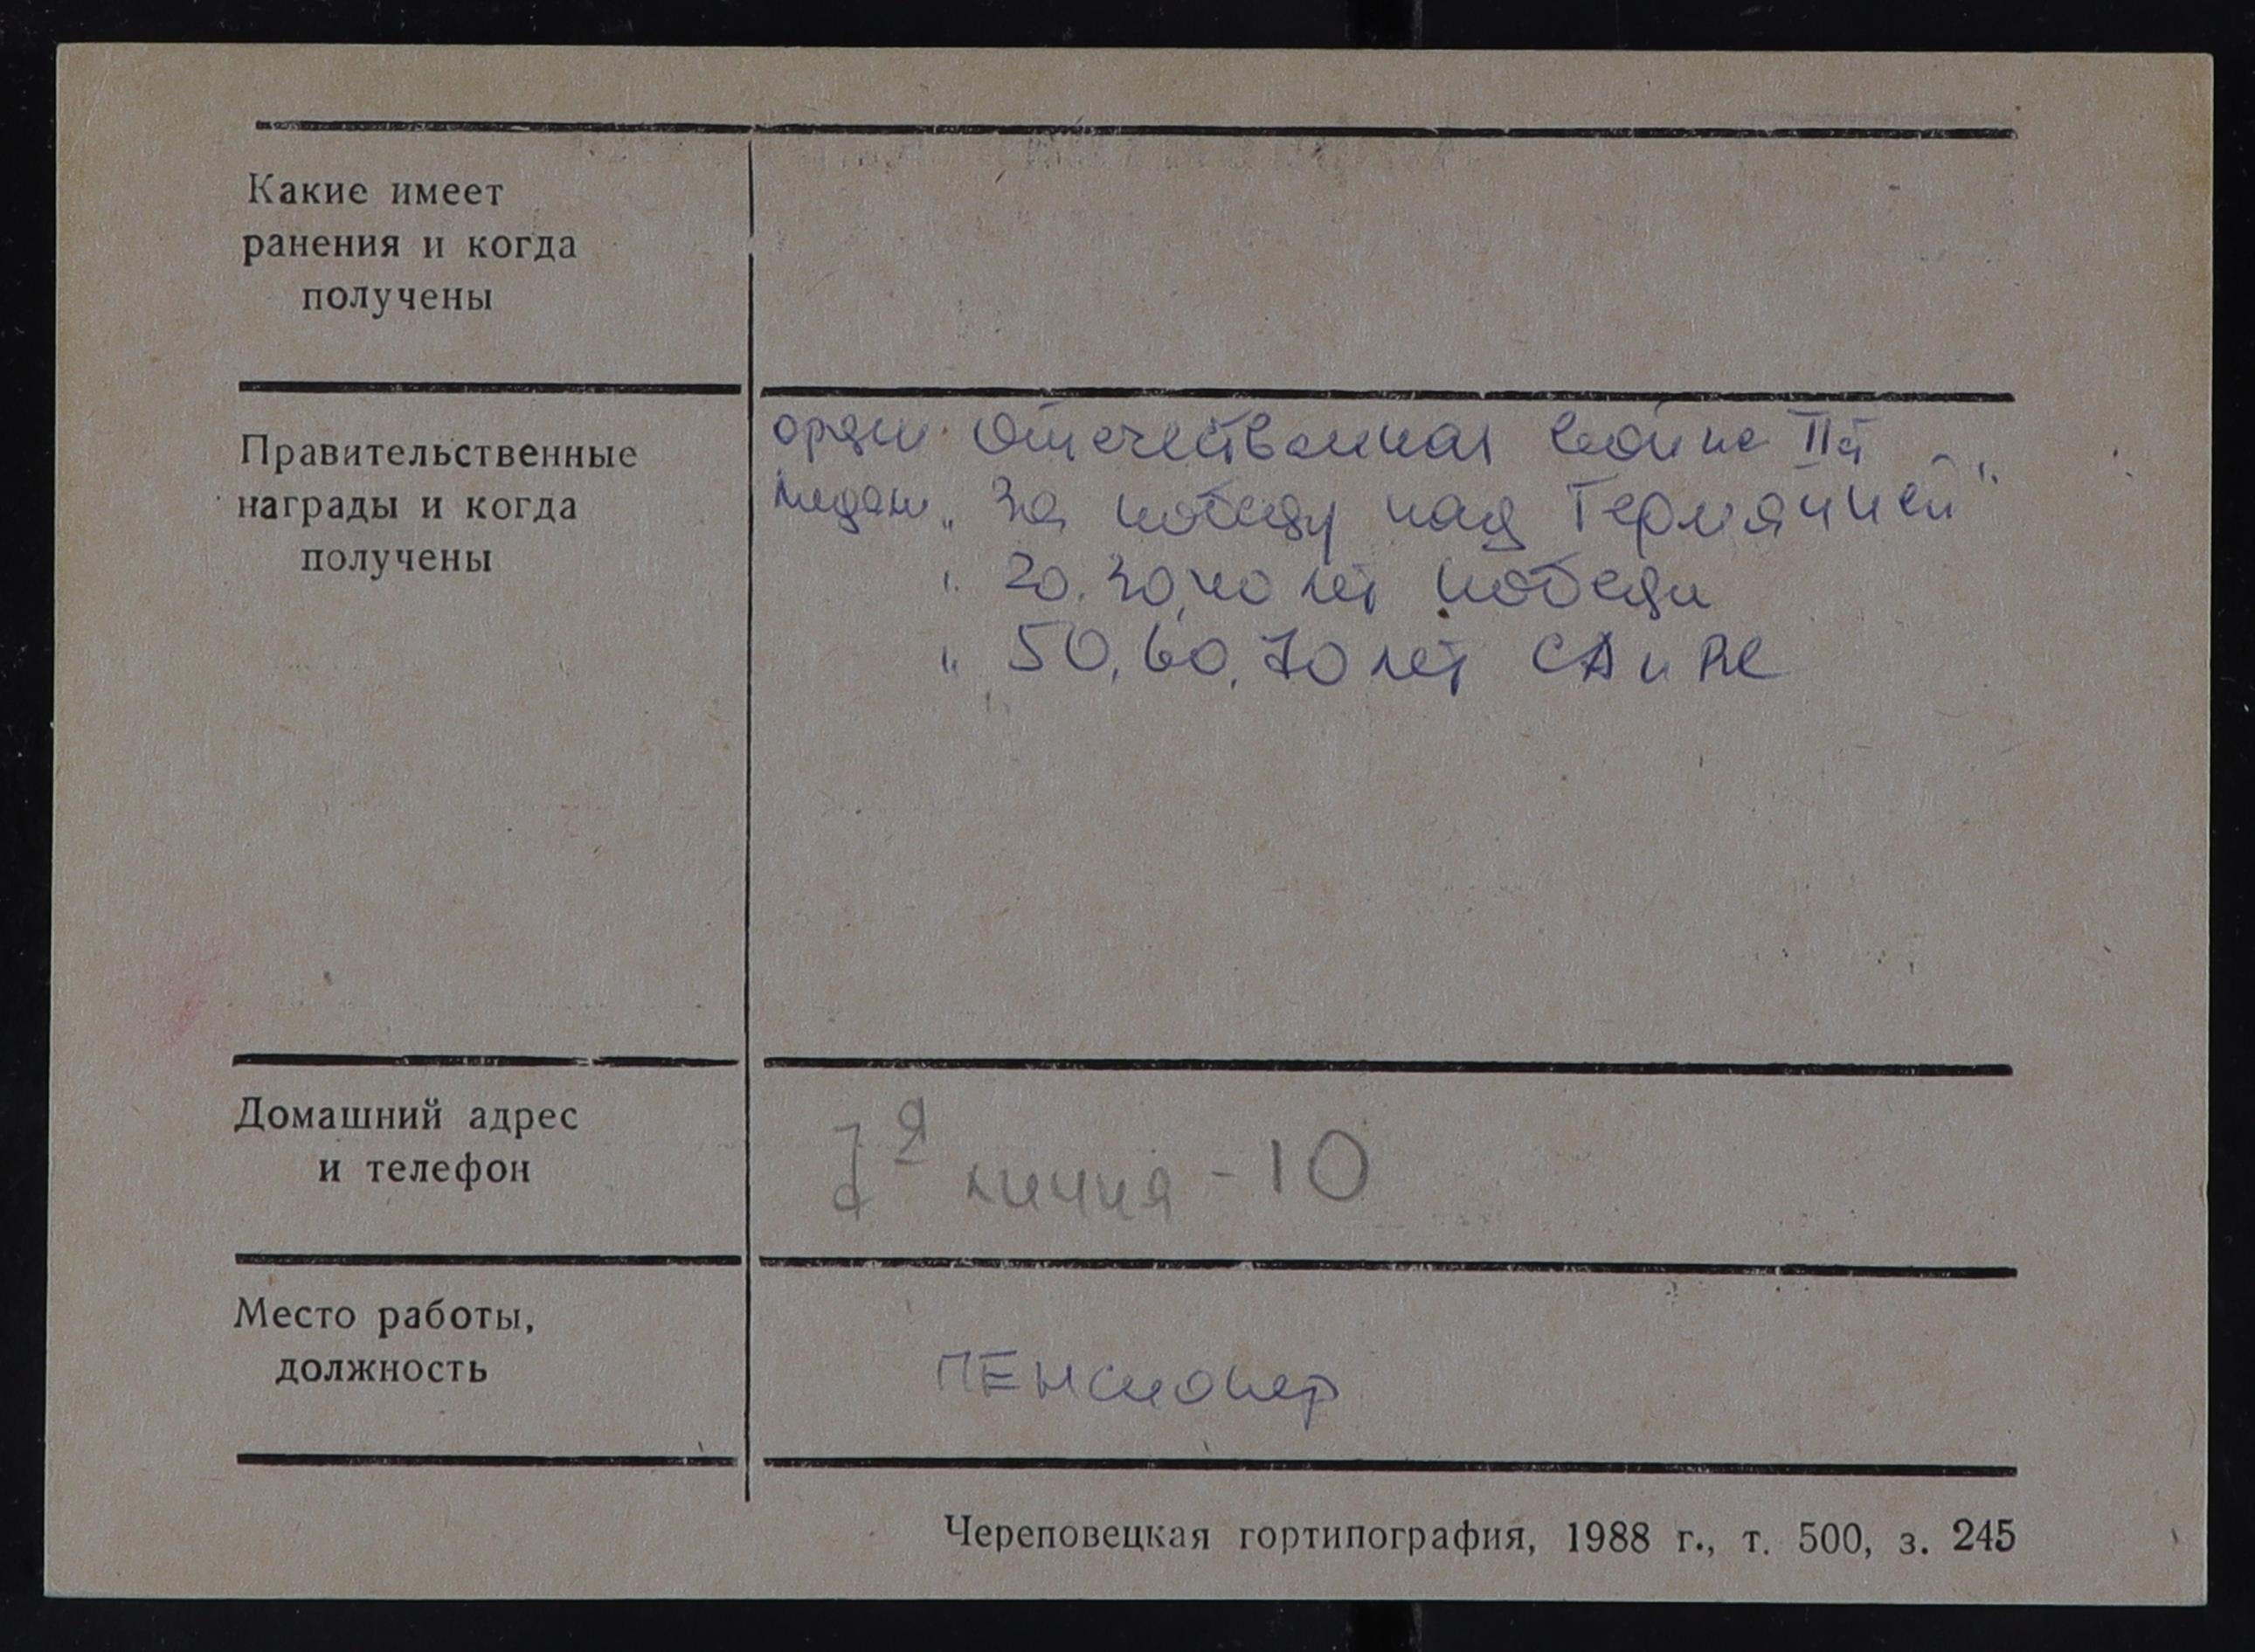 Какие имеет
ранения и когда
получены
Правительственные
награды и когда
получены
орден Отечественная война II ст
медаль „За победу над Германией"
" 20. 30, 40 лет победы
" 50, 60, 70 лет СА и
Домашний адрес
и телефон
7я линия - 10
Место работы,
должность
ПЕНсионер
Череповецкая гортипография, 1988 г., т. 500, з. 245